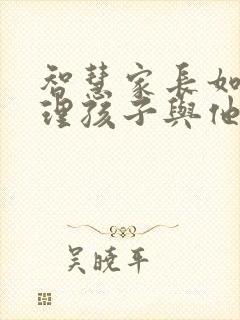 智慧家長如
理孩子與他
吳曉平